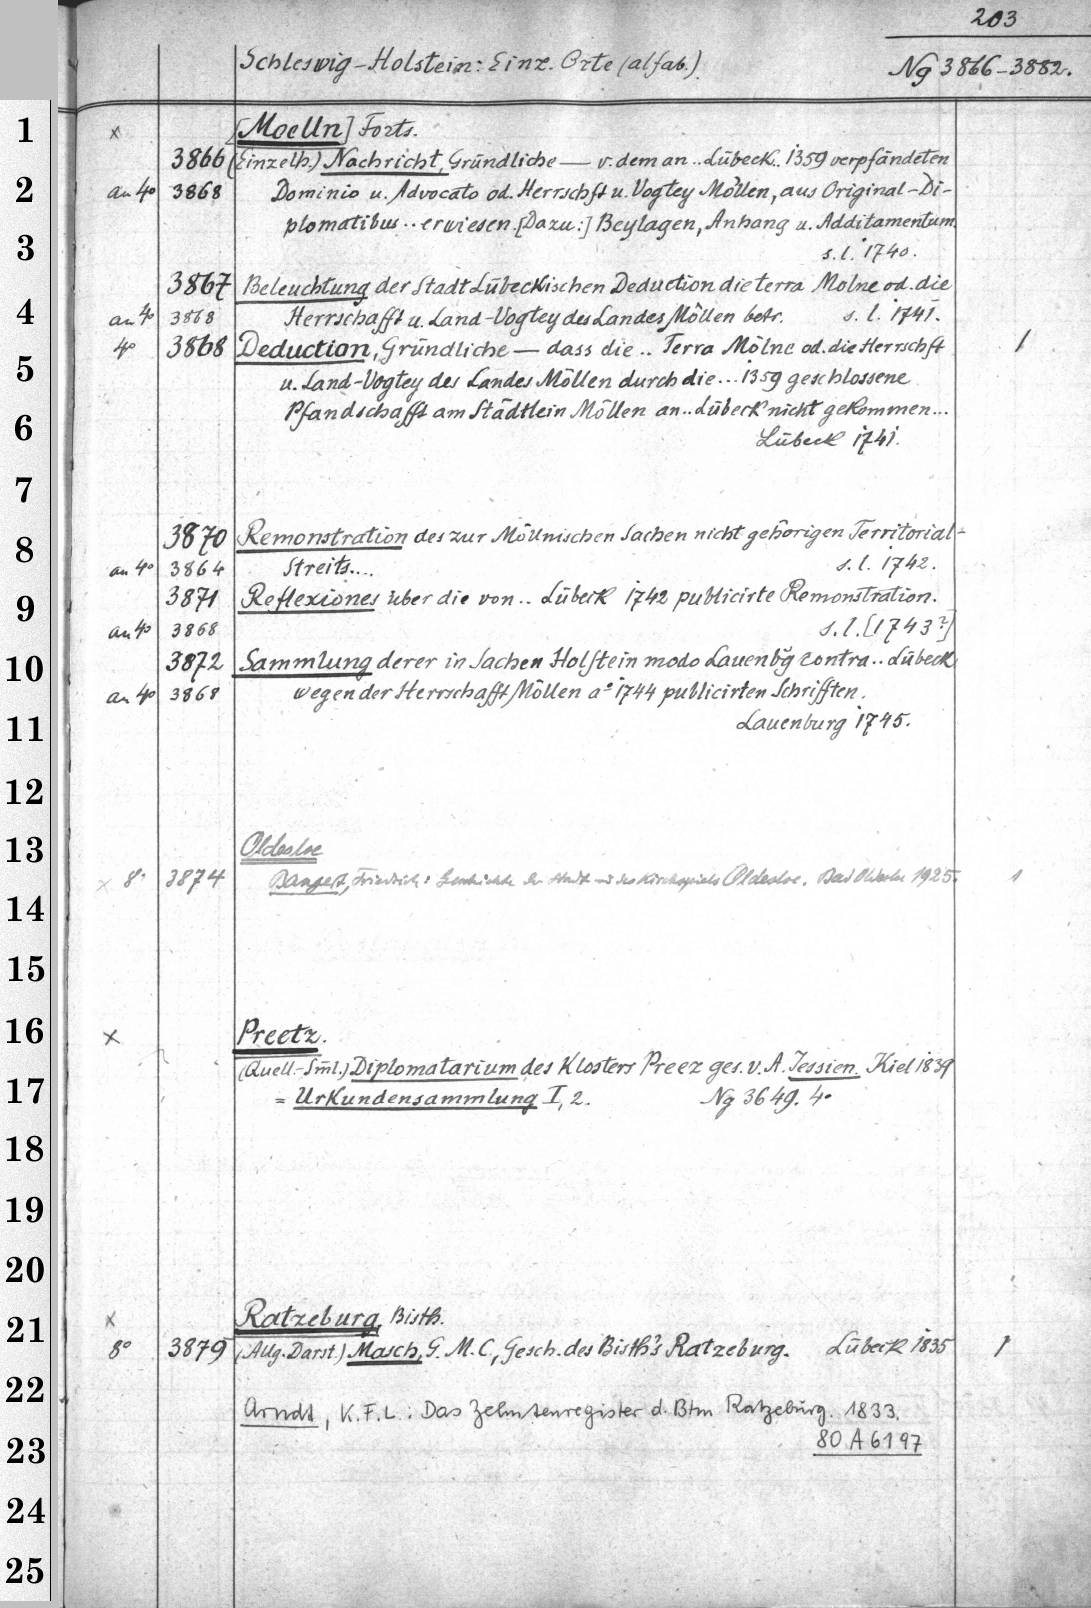 203
Schleswig-Holstein: Einz. Orte (alfab.).
Ng 3866-3882.
1
x [Moelln] Forts.
3866 (Einzelh.) Nachricht, Gründliche — v. dem an .. Lübeck .. 1359 verpfändeten
2
an 4° 3868 Dominio u. Advocato od. Herrschft u. Vogtey Möllen, aus Original-Di-
plomatibus .. erwiesen. [Dazu:] Beylagen, Anhang u. Additamentum.
3
s. l. 1740.
3867 Beleuchtung der Stadt Lübeckischen Deduction die terra Molne od. die
4
an 4° 3868 Herrschafft u. Land-Vogtey des Landes Möllen betr. s. l. 1741.
4° 3868 Deduction, Gründliche — dass die .. Terra Mölne od. die Herrschft 1
5
u. Land-Vogtey des Landes Möllen durch die ... 1359 geschlossene
Pfandschafft am Städtlein Möllen an .. Lübeck nicht gekommen ...
6
Lübeck 1741.
7
3870 Remonstration des zur Möllnischen Sachen nicht gehörigen Territorial-
8
an 4° 3864 Streits.... s. l. 1742.
3871 Reflexiones über die von .. Lübeck 1742 publicirte Remonstration.
9
an 4° 3868 s. l. [1743?]
10
3872 Sammlung derer in Sachen Holstein modo Lauenbg contra .. Lübeck
an 4° 3868 wegen der Herrschafft Möllen a° 1744 publicirten Schrifften.
11
Lauenburg 1745.
12
13
Oldesloe
x 8° 3874 Bangert, Friedrich: Geschichte der Stadt und des Kirchspiels Oldesloe. Bad Oldesloe 1925. 1
14
15
16
x Preetz.
(Quell.-Sml.) Diplomatarium des Klosters Preez ges. v. A. Jessien. Kiel 1839
17
= Urkundensammlung I, 2. Ng 3649. 4°
18
19
20
21
x Ratzeburg, Bisth.
8° 3879 (Allg. Darst.) Masch, G. M. C., Gesch. des Bisth's Ratzeburg. Lübeck 1835 1
22
Arndt, K. F. L.: Das Zehntenregister d. Btm Ratzeburg. 1833.
23
80 A 6197
24
25